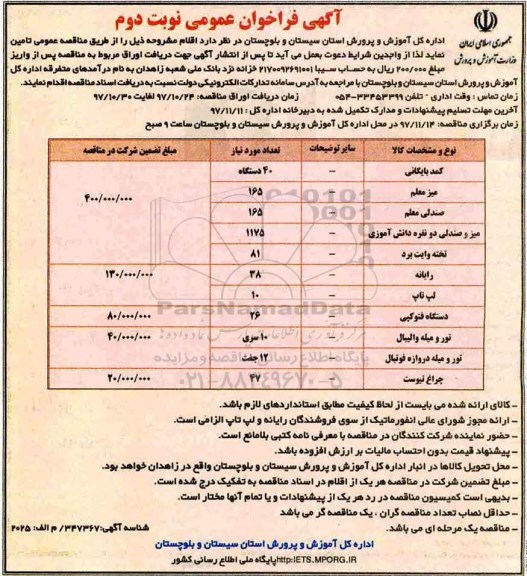 آگهی فراخوان عمومی نوبت دوم
جمهوری اسلامی ایران
وزارت آموزش و پرورش
اداره کل آموزش و پرورش استان سیستان و بلوچستان در نظر دارد اقلام مشروحه ذیل را از طریق مناقصه عمومی تامین
نماید لذا از واجدین شرایط دعوت بعمل می آید تا پس از انتشار آگهی جهت دریافت اوراق مربوط به مناقصه پس از واریز
مبلغ ۲۰۰/۰۰۰ ریال به حساب سیبا ۲۱۷۰۰۹۲۶۹۱۰۰۱ خزانه نزد بانک ملی شعبه زاهدان به نام درآمدهای متفرقه اداره کل
آموزش و پرورش استان سیستان و بلوچستان با مراجعه به آدرس سامانه تدارکات الکترونیکی دولت نسبت به دریافت اسناد مناقصه اقدام نمایند.
زمان تماس : وقت اداری - تلفن ۳۳۴۵۳۳۹۹-۰۵۴ زمان دریافت اوراق مناقصه: ۹۷/۱۰/۲۴ لغایت ۹۷/۱۰/۳۰
آخرین مهلت تسلیم پیشنهادات و مدارک تکمیل شده به دبیرخانه اداره کل : ۹۷/۱۱/۱۱
زمان برگزاری مناقصه: ۹۷/۱۱/۱۴ در محل اداره کل آموزش و پرورش سیستان و بلوچستان ساعت ۹ صبح
نوع و مشخصات کالا سایر توضیحات تعداد مورد نیاز مبلغ تضمین شرکت در مناقصه
کمد بایگانی – ۴۰ دستگاه
میز معلم – ۱۶۵ ۴۰۰/۰۰۰/۰۰۰
صندلی معلم – ۱۶۵
میز و صندلی دو نفره دانش آموزی – ۱۱۷۵
تخته وایت برد – ۸۱
رایانه – ۳۸ ۱۳۰/۰۰۰/۰۰۰
لپ تاپ – ۱۰
دستگاه فتوکپی – ۲۶ ۸۰/۰۰۰/۰۰۰
تور و میله والیبال – ۱۰ سری ۴۰/۰۰۰/۰۰۰
تور و میله دروازه فوتبال – ۱۲ جفت
چراغ تیوست – ۴۷ ۲۰/۰۰۰/۰۰۰
ParsNamadData
۰۲۱-۸۸۳۴۹۶۷۰-۵
- کالای ارائه شده می بایست از لحاظ کیفیت مطابق استانداردهای لازم باشد.
- ارائه مجوز شورای عالی انفورماتیک از سوی فروشندگان رایانه و لپ تاپ الزامی است.
- حضور نماینده شرکت کنندگان در مناقصه با معرفی نامه کتبی بلامانع است.
- پیشنهاد قیمت بدون احتساب مالیات بر ارزش افزوده باشد.
- محل تحویل کالاها در انبار اداره کل آموزش و پرورش سیستان و بلوچستان واقع در زاهدان خواهد بود.
- مبلغ تضمین شرکت در مناقصه هر یک از اقلام در اسناد مناقصه به تفکیک درج شده است.
- بدیهی است کمیسیون مناقصه در رد هر یک از پیشنهادات و یا تمام آنها مختار است.
- حداقل نصاب تعداد مناقصه گران ، یک مناقصه گر می باشد
- مناقصه یک مرحله ای می باشد.
شناسه آگهی: ۳۴۷۳۶۷/ م الف: ۲۰۲۵
اداره کل آموزش و پرورش استان سیستان و بلوچستان
http:IETS.MPORG.IR پایگاه ملی اطلاع رسانی کشور